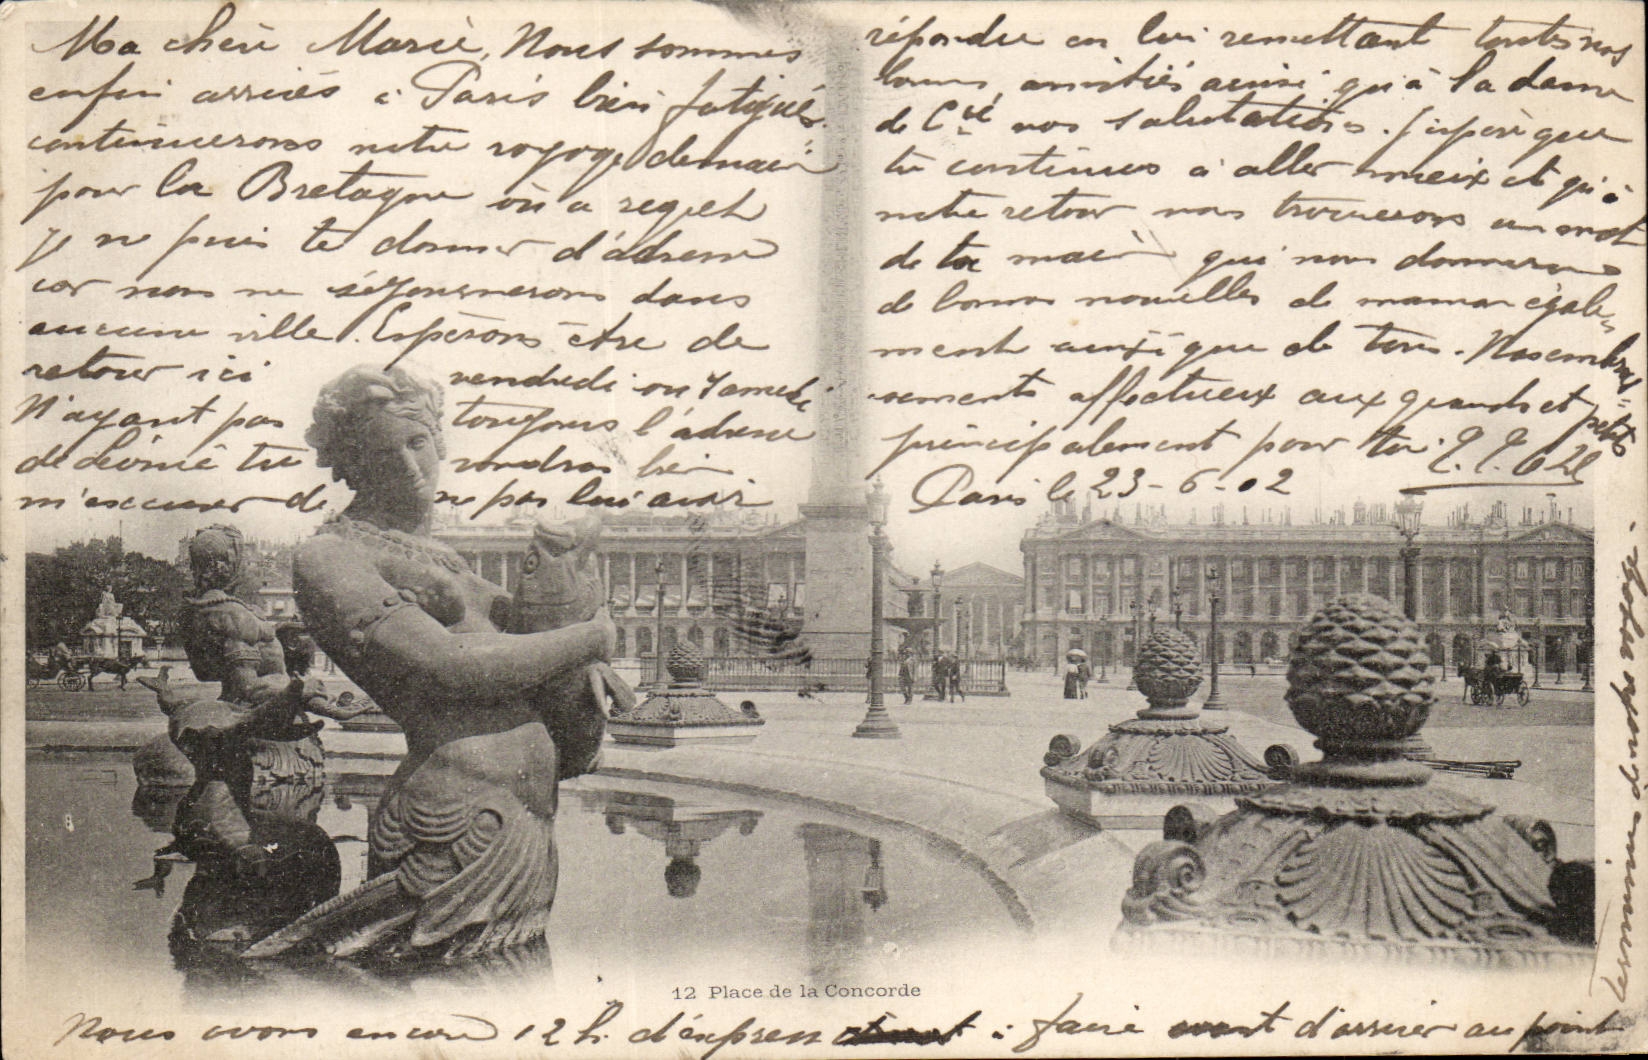 Ma chère Marie, Nous sommes
enfin arrivés à Paris bien fatigués
continuerons notre voyage demain
pour la Bretagne où a regret
je ne puis te donner d'adresse
car nous ne séjournerons dans
aucune ville. Espérons être de
retour ici vendredi ou samedi
N'ayant pas toujours l'adresse
de Léonie tu voudras bien
m'excuser de ne pas lui avoir
répondu en lui remettant toutes nos
bonnes amitiés ainsi qu'à la dame
de Cie nos salutations. J'espère que
tu continues à aller mieux et qu'à
notre retour nous trouverons un mot
de ta main qui nous donnera
de bonnes nouvelles de maman égale=
ment ainsi que de tous. Nos embras=
sements affectueux aux grands et petits
principalement pour toi.
Paris le 23-6-02
12 Place de la Concorde
Nous avons encore 12 h. d'express à faire avant d'arriver au point
terminus du voyage